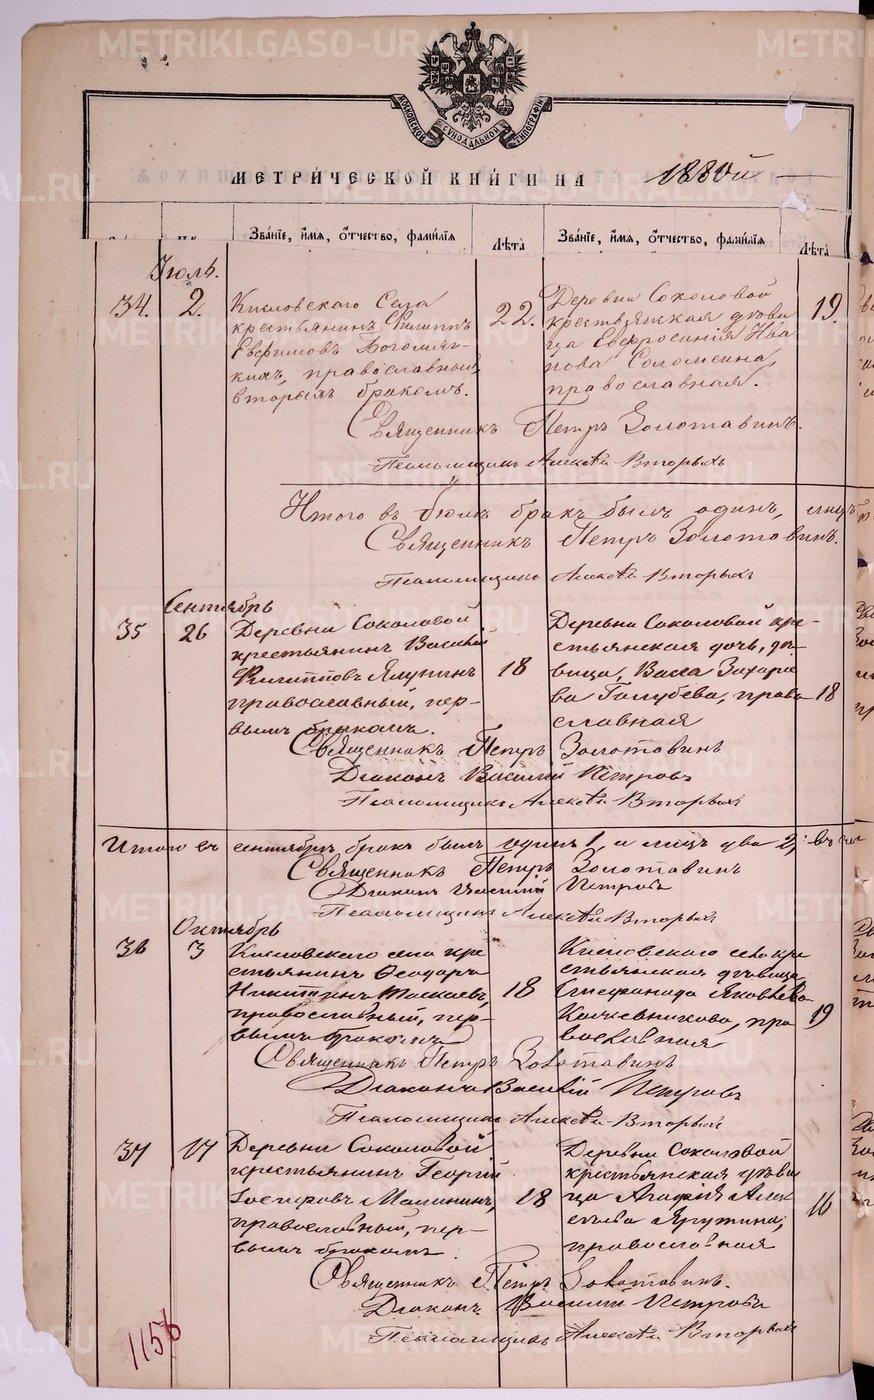 МОСКОВСКОЙ СУНОДАЛЬНОЙ ТИПОГРАФІИ
МЕТРИ́ЧЕСКОЙ КНИ́ГИ НА 1880й
Зва́нїе, и҆́мѧ, ѻ҆́тчество, фами́лїѧ
Лѣ́та
Зва́нїе, и҆́мѧ, ѻ҆́тчество, фами́лїѧ
Лѣ́та
Іюль.
34. 2.
Кисловскаго Села
крестьянинъ Филиппъ
Евфимовъ Богомяг-
кихъ, православный,
вторымъ бракомъ.
22.
Деревни Соколовой
крестьянская дѣви
ца Евфросинія Ива
нова Соломеина,
православная.
19.
Священникъ Петръ Золотавинъ.
Псаломщикъ Алексѣй Вторыхъ
Итого въ Іюлѣ бракъ былъ одинъ, лицъ
Священникъ Петръ Золотавинъ.
Псаломщикъ Алексѣй Вторыхъ
Сентябрь
35 26
Деревни Соколовой
крестьянинъ Василій
Филипповъ
православный, пер-
вымъ бракомъ.
18
Деревни Соколовой кре-
стьянская дочь, дѣ-
вица, Васса Захаро
ва Голубева, право
славная
18
Священникъ Петръ Золотавинъ
Діаконъ Василій Петровъ
Псаломщикъ Алексѣй Вторыхъ
Итого въ сентябрѣ бракъ былъ одинъ 1, а лицъ два 2,
Священникъ Петръ Золотавинъ
Діаконъ Василій Петровъ
Псаломщикъ Алексѣй Вторыхъ
Октябрь
36 3
Кисловскаго села кре
стьянинъ Ѳеодоръ
Никитинъ
православный, пер-
вымъ бракомъ
18
Кисловскаго села кре
стьянская дѣвица
Стефанида Яковлева
Колчевникова, пра
вославная
19
Священникъ Петръ Золотавинъ
Діаконъ Василій Петровъ
Псаломщикъ Алексѣй Вторыхъ
37 17
Деревни Соколовой
крестьянинъ Георгій
Іосифовъ Малининъ,
православный, пер-
вымъ бракомъ
18
Деревни Соколовой
крестьянская дѣви
ца Агафія Алек
сѣева
православная
16
Священникъ Петръ Золотавинъ.
Діаконъ Василій Петровъ
Псаломщикъ Алексѣй Вторыхъ
1156
METRIKI.GASO-URAL.RU